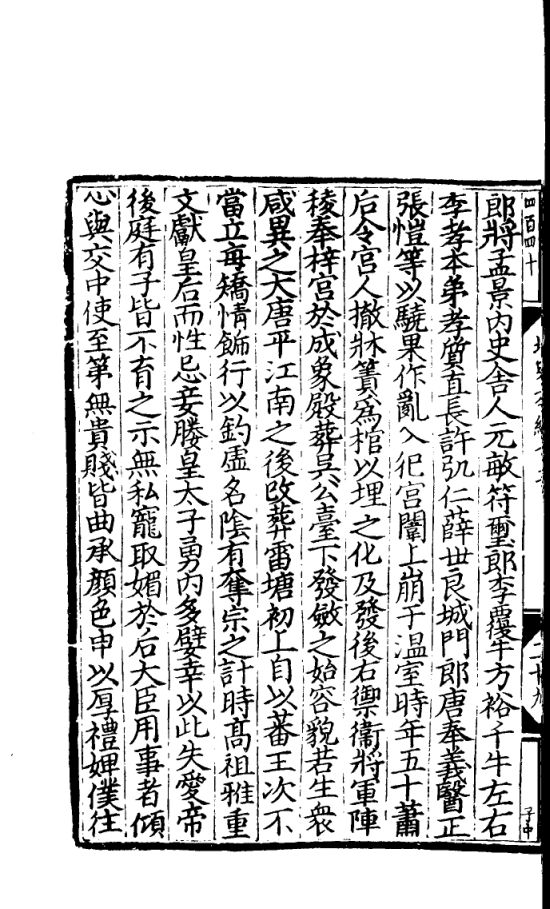 四百四十
二十九
子中
郎將孟景內史舍人元敏符璽郎李覆牛方裕千牛左右
李孝本弟孝質直長許弘仁薛世良城門郎唐奉義醫正
張愷等以驍果作亂入犯宮闈上崩于溫室時年五十蕭
后令宮人撤牀簀爲棺以埋之化及發後右禦衞將軍陣
稜奉梓宮於成象殿葬吳公臺下發斂之始容貌若生衆
咸異之大唐平江南之後改葬雷塘初上自以蕃王次不
當立每矯情飾行以釣虛名陰有奪宗之計時髙祖雅重
文獻皇后而性忌妾勝皇太子勇內多嬖幸以此失愛帝
後庭有子皆不育之示無私寵取媚於后大臣用事者傾
心與交中使至第無貴賤皆曲承顏色申以厚禮婢僕往